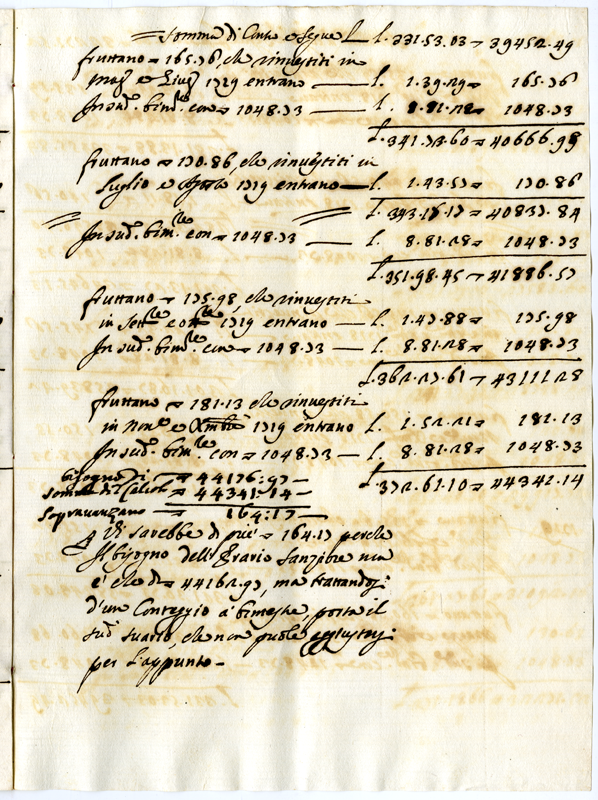 = Somma di Contro e segue L l. 331.53.03 = 39452.49
fruttano = 165.76, che rinvestiti in
Mag.o e Giug.o 1719 entrano — l. 1.39.29 = 165.76
In sud.o bim.re con = 1048.73 — l. 8.81.28 = 1048.73
l. 341.73.60 = 40666.98
fruttano = 170.86, che rinvestiti in
Luglio e Agosto 1719 entrano — l. 1.43.57 = 170.86
l. 343.17.17 = 40837.84
In sud.o bim.re con = 1048.73 — l. 8.81.28 = 1048.73
l. 351.98.45 = 41886.57
fruttano = 175.98, che rinvestiti
in Sett.re e ott.re 1719 entrano — l. 1.47.88 = 175.98
In sud.o bim.re con = 1048.73 — l. 8.81.28 = 1048.73
l. 362.27.61 = 43111.28
fruttano = 181.13 che rinvestiti
in nov.e e Xmbre 1719 entrano l. 1.52.21 = 181.13
In sud.o bim.re con = 1048.73 — l. 8.81.28 = 1048.73
bisogno di = 44176:97 — l. 372.61.10 = 44341.14
Somma di = 44341.14 —
Sopravanzano = 164:17 —
Vi sarebbe di più = 164.17 perche
Il bisogno dell'Erario non
è che di = 44162.97, ma trattandosi
d'un Conteggio a bimestre, porta il
sud.o suario, che non puole aggiustarsi
per l'appunto —